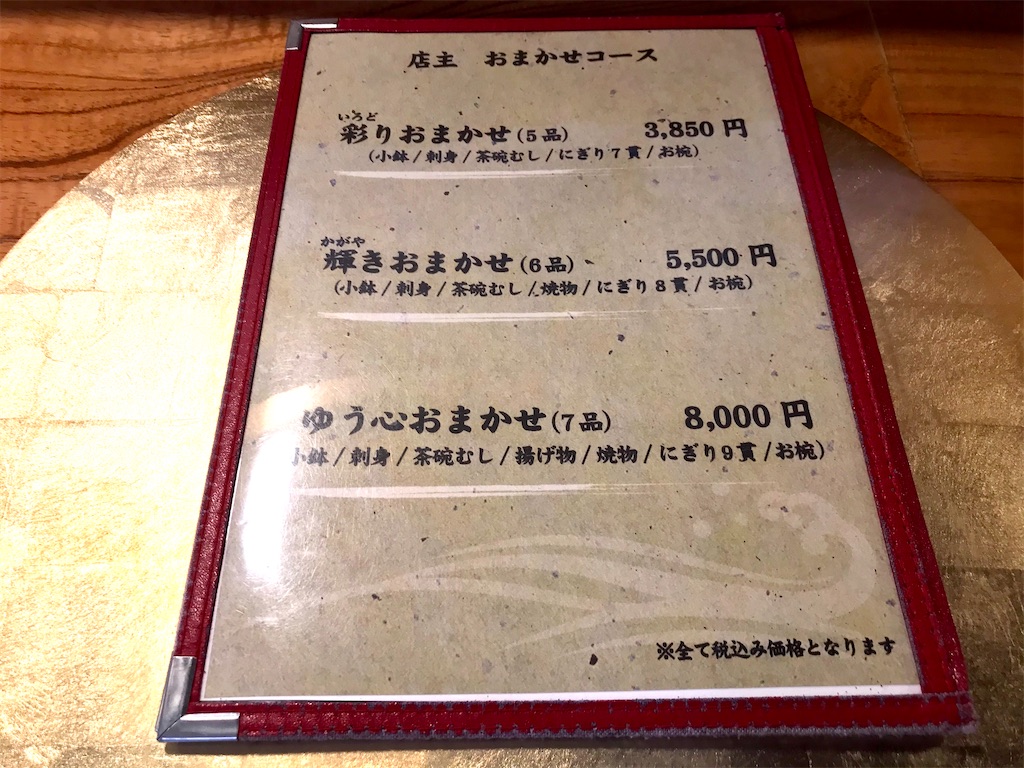 店主　おまかせコース
いろど
彩りおまかせ(5品) 3,850円
(小鉢/刺身/茶碗むし/にぎり7貫/お椀)
かがや
輝きおまかせ(6品) 5,500円
(小鉢/刺身/茶碗むし/焼物/にぎり8貫/お椀)
ゆう心おまかせ(7品) 8,000円
小鉢/刺身/茶碗むし/揚げ物/焼物/にぎり9貫/お椀)
※全て税込み価格となります